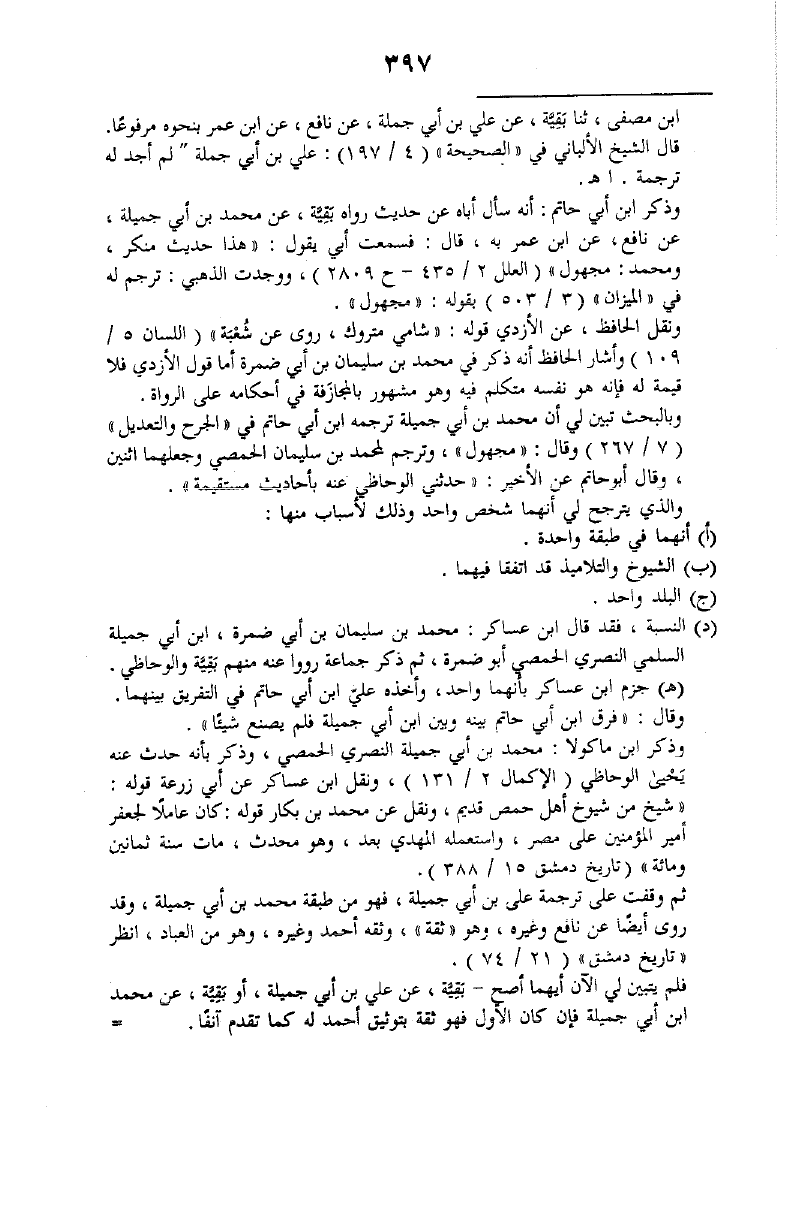 ٣٩٧
ابن مصفى ، ثنا بَقِيَّة ، عن علي بن أبي جملة ، عن نافع ، عن ابن عمر بنحوه مرفوعًا.
قال الشيخ الألباني في «الصحيحة» ( ٤ / ١٩٧) : علي بن أبي جملة " لم أجد له
ترجمة . ا هـ .
وذكر ابن أبي حاتم : أنه سأل أباه عن حديث رواه بَقِيَّة ، عن محمد بن أبي جميلة ،
عن نافع، عن ابن عمر به ، قال : فسمعت أبي يقول : «هذا حديث منكر ،
ومحمد : مجهول» ( العلل ٢ / ٤٣٥ – ح ٢٨٠٩ ) ، ووجدت الذهبي : ترجم له
في «الميزان» ( ٣ / ٥٠٣ ) بقوله : «مجهول» .
ونقل الحافظ ، عن الأزدي قوله : «شامي متروك ، روى عن شُعْبَة» ( اللسان ٥ /
١٠٩ ) وأشار الحافظ أنه ذكر في محمد بن سليمان بن أبي ضمرة أما قول الأزدي فلا
قيمة له فإنه هو نفسه متكلم فيه وهو مشهور بالمجازَفة في أحكامه على الرواة .
وبالبحث تبين لي أن محمد بن أبي جميلة ترجمه ابن أبي حاتم في «الجرح والتعديل»
( ٧ / ٢٦٧ ) وقال : «مجهول» ، وترجم لمحمد بن سليمان الحمصي وجعلهما اثنين
، وقال أبوحاتم عن الأخير : «حدثني الوحاظي عنه بأحاديث مستقيمة» .
والذي يترجح لي أنهما شخص واحد وذلك لأسباب منها :
(أ) أنهما في طبقة واحدة .
(ب) الشيوخ والتلاميذ قد اتفقا فيهما .
(ج) البلد واحد .
(د) النسبة ، فقد قال ابن عساكر : محمد بن سليمان بن أبي ضمرة ، ابن أبي جميلة
السلمي النصري الحمصي أبو ضمرة ، ثم ذكر جماعة رووا عنه منهم بَقِيَّة والوحاظي .
(هـ) جزم ابن عساكر بأنهما واحد، وأخذه عليَّ ابن أبي حاتم في التفريق بينهما .
وقال : «فرق ابن أبي حاتم بينه وبين ابن أبي جميلة فلم يصنع شيئًا» .
وذكر ابن ماكولا : محمد بن أبي جميلة النصري الحمصي ، وذكر بأنه حدث عنه
يَحْيىٰ الوحاظي ( الإكمال ٢ / ١٣١ ) ، ونقل ابن عساكر عن أبي زرعة قوله :
«شيخ من شيوخ أهل حمص قديم ، ونقل عن محمد بن بكار قوله : كان عاملًا لجعفر
أمير المؤمنين على مصر ، واستعمله المهدي بعد ، وهو محدث ، مات سنة ثمانين
ومائة» ( تاريخ دمشق ١٥ / ٣٨٨ ) .
ثم وقفت على ترجمة على بن أبي جميلة ، فهو من طبقة محمد بن أبي جميلة ، وقد
روى أيضًا عن نافع وغيره ، وهو «ثقة» ، وثقه أحمد وغيره ، وهو من العباد ، انظر
«تاريخ دمشق» ( ٢١ / ٧٤ ) .
فلم يتبين لي الآن أيهما أصح – بَقِيَّة ، عن علي بن أبي جميلة ، أو بَقِيَّة ، عن محمد
ابن أبي جميلة فإن كان الأول فهو ثقة بتوثيق أحمد له كما تقدم آنفًا . =